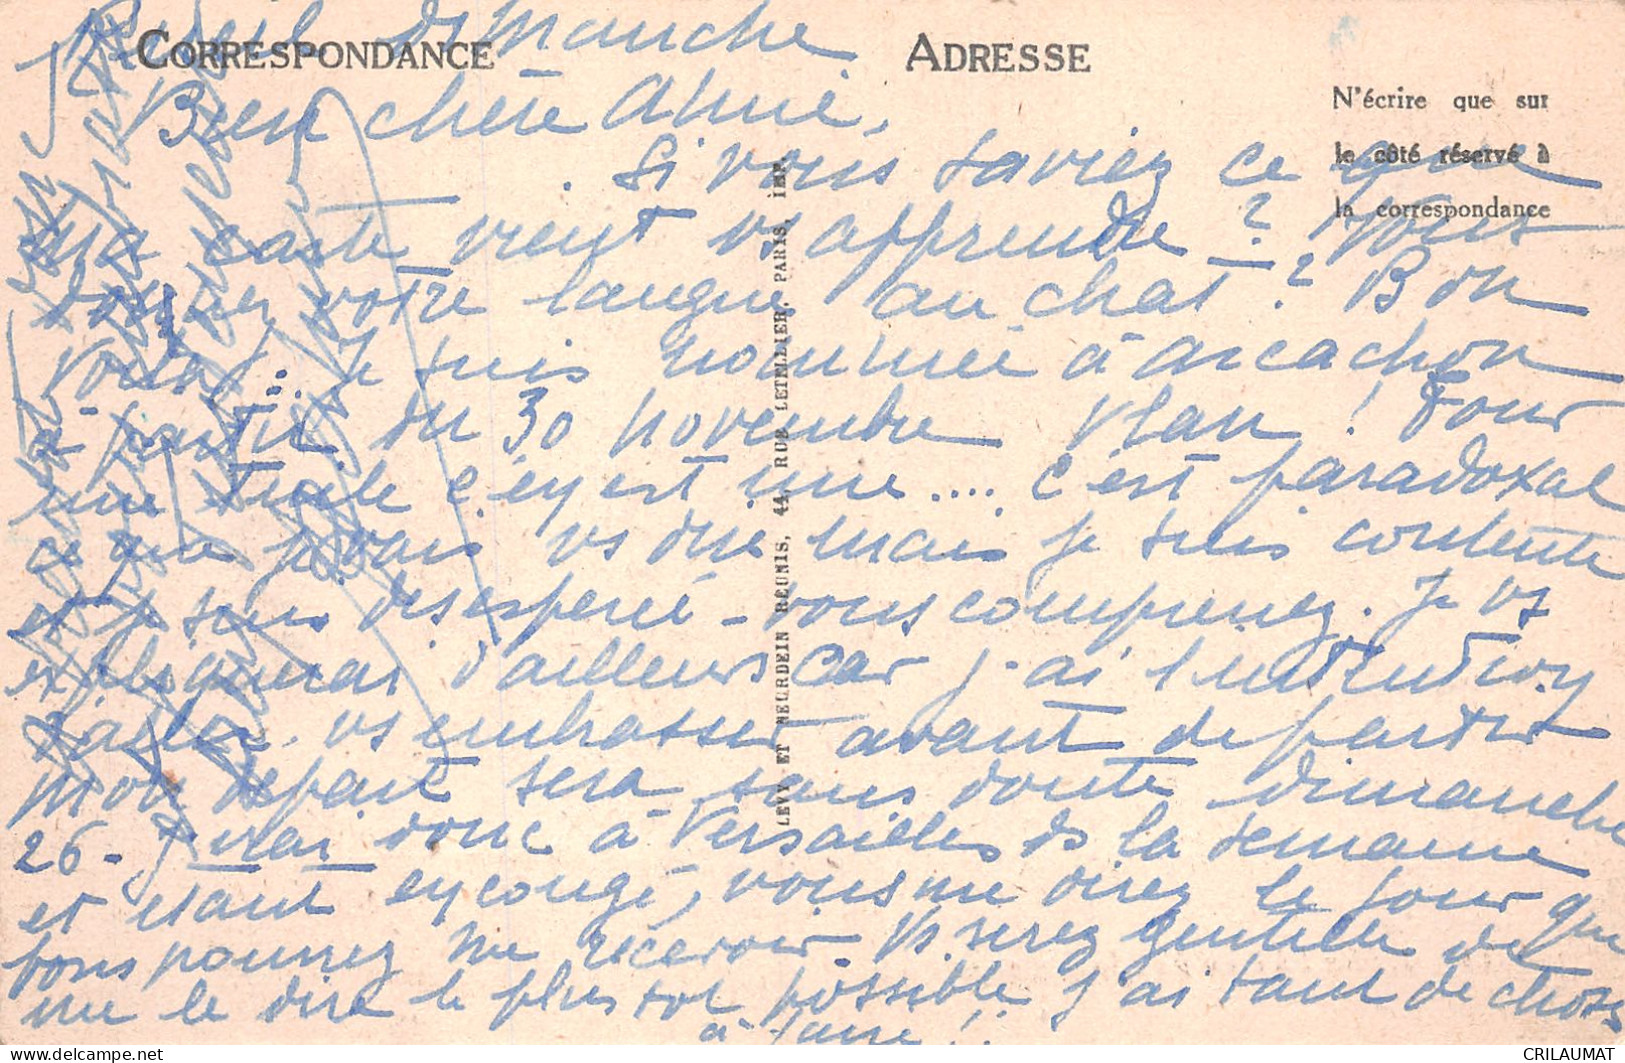 dimanche
CORRESPONDANCE
ADRESSE
N'écrire que sur
le côté réservé à
la correspondance
Bien chère Amie,
Si vous saviez ce que
ma carte vient vs apprendre ? Vous
donnez votre langue au chat ? Bon
voilà !... Je suis nommée à Arcachon
à partir du 30 novembre Vlan ! Pour
une tuile c'en est une .... C'est paradoxal
ce que je vais vs dire mais je suis contente
et je suis desesperée - vous comprenez. Je vs
expliquerai d'ailleurs car j'ai l'intention
d'aller vs embrasser avant de partir
Mon départ sera sans doute dimanche
26 - J'irai donc à Versailles ds la semaine
et étant en congé, vous me direz le jour que
vous pourrez me recevoir. Vs serez gentille de
me le dire le plus tot possible j'ai tant de choses
à faire !!
LEVY ET NEURDEIN REUNIS, 44, RUE LETELLIER, PARIS, IMP.
CRILAUMAT